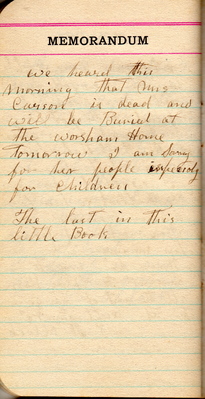 MEMORANDUM
we heard this
morning that Mrs
Carson is dead and
will be Buried at
the worsham Home
Tomorrow I am Sorry
for her people
for children
The last in this
little Book